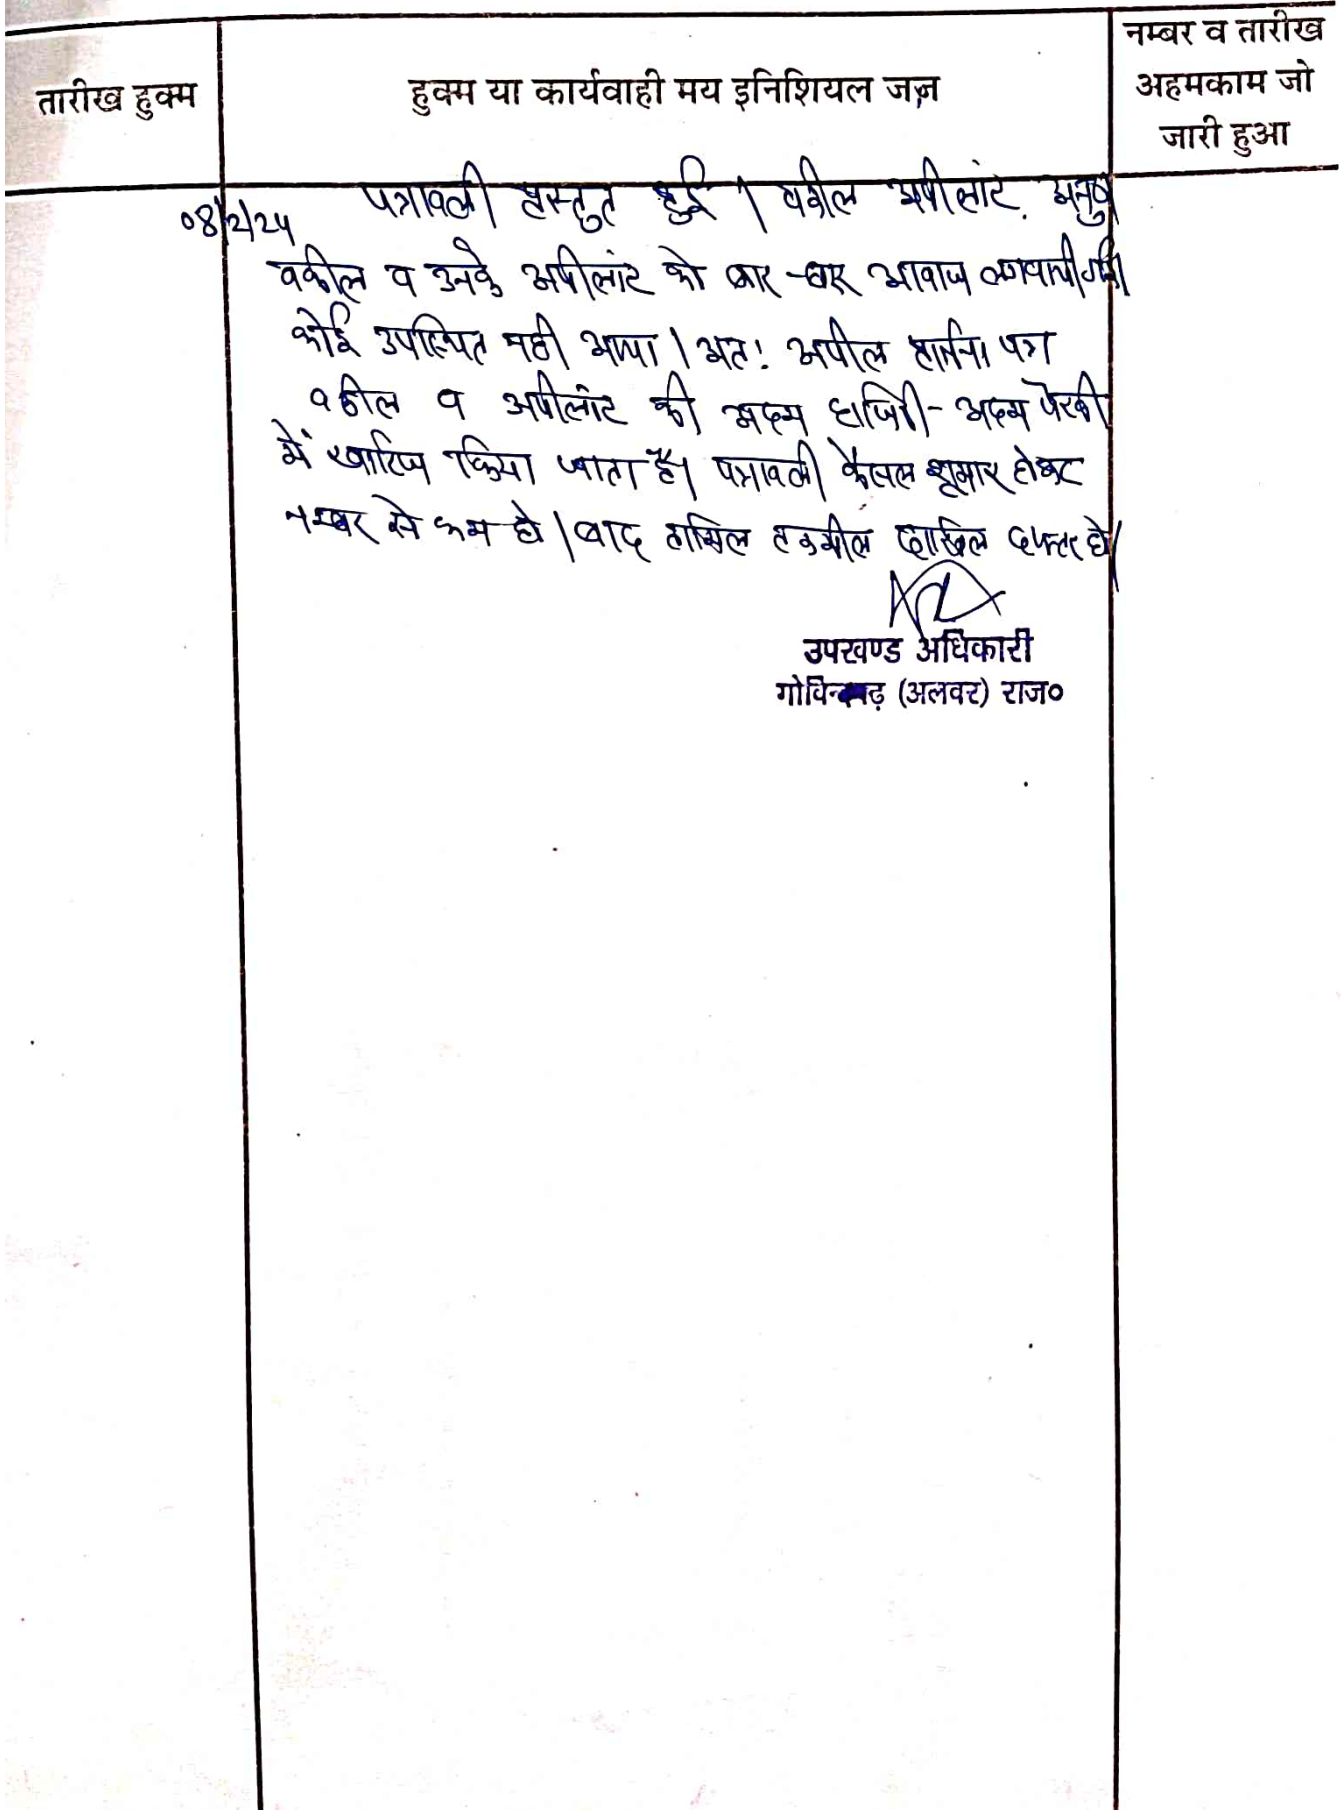 तारीख हुक्म
हुक्म या कार्यवाही मय इनिशियल जज
नम्बर व तारीख
अहमकाम जो
जारी हुआ
08/2/24
पत्रावली प्रस्तुत हुई। वकील अपीलांट
वकील व उनके अपीलांट को बार-बार आवाज लगवायी गयी
कोई उपस्थित नही आया। अतः अपील प्रार्थना पत्र
वकील व अपीलांट की अदम हाजिरी-अदम पैरवी
में खारिज किया जाता है। पत्रावली फैसल शूमार होकर
नम्बर से कम हो। बाद तामिल तकमील दाखिल दफ्तर हो।
उपखण्ड अधिकारी
गोविन्दगढ़ (अलवर) राज०